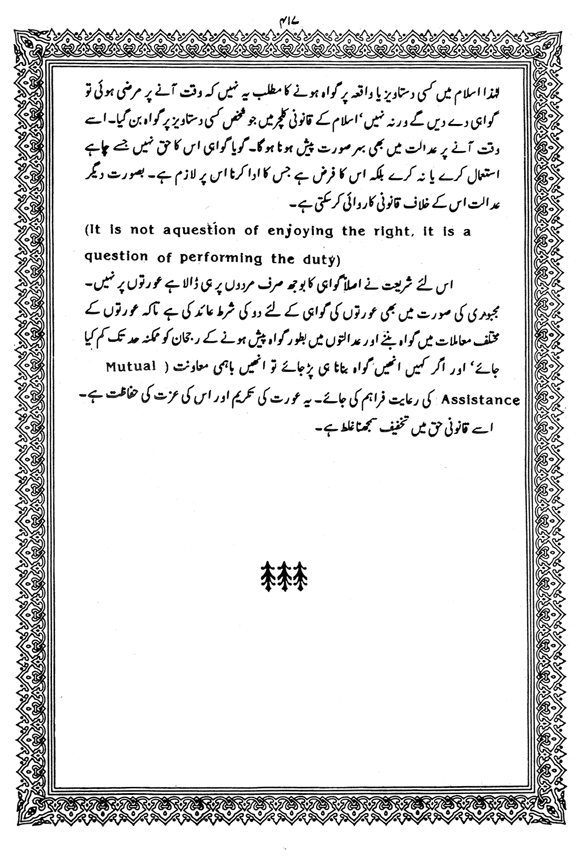 ۴۱۷
لہٰذا اسلام میں کسی دستاویز یا واقعہ پر گواہ ہونے کا مطلب یہ نہیں کہ وقت آنے پر مرضی ہوئی تو
گواہی دے دیں گے ورنہ نہیں‘ اسلام کے قانونی کلچر میں جو شخص کسی دستاویز پر گواہ بن گیا۔ اسے
وقت آنے پر عدالت میں بھی بہر صورت پیش ہونا ہوگا۔ گویا گواہی اس کا حق نہیں جسے چاہے
استعمال کرے یا نہ کرے بلکہ اس کا فرض ہے جس کا ادا کرنا اس پر لازم ہے۔ بصورت دیگر
عدالت اس کے خلاف قانونی کاروائی کر سکتی ہے۔
(It is not aquestion of enjoying the right, it is a
question of performing the duty)
اس لئے شریعت نے اصلاً گواہی کا بوجھ صرف مردوں پر ہی ڈالا ہے عورتوں پر نہیں۔
مجبوری کی صورت میں بھی عورتوں کی گواہی کے لئے دو کی شرط عائد کی ہے تاکہ عورتوں کے
مختلف معاملات میں گواہ بننے اور عدالتوں میں بطور گواہ پیش ہونے کے رجحان کو ممکنہ حد تک کم کیا
جائے‘ اور اگر کہیں انھیں گواہ بنانا ہی پڑ جائے تو انھیں باہمی معاونت ( Mutual
Assistance کی رعایت فراہم کی جائے۔ یہ عورت کی تکریم اور اس کی عزت کی حفاظت ہے۔
اسے قانونی حق میں تخفیف سمجھنا غلط ہے۔